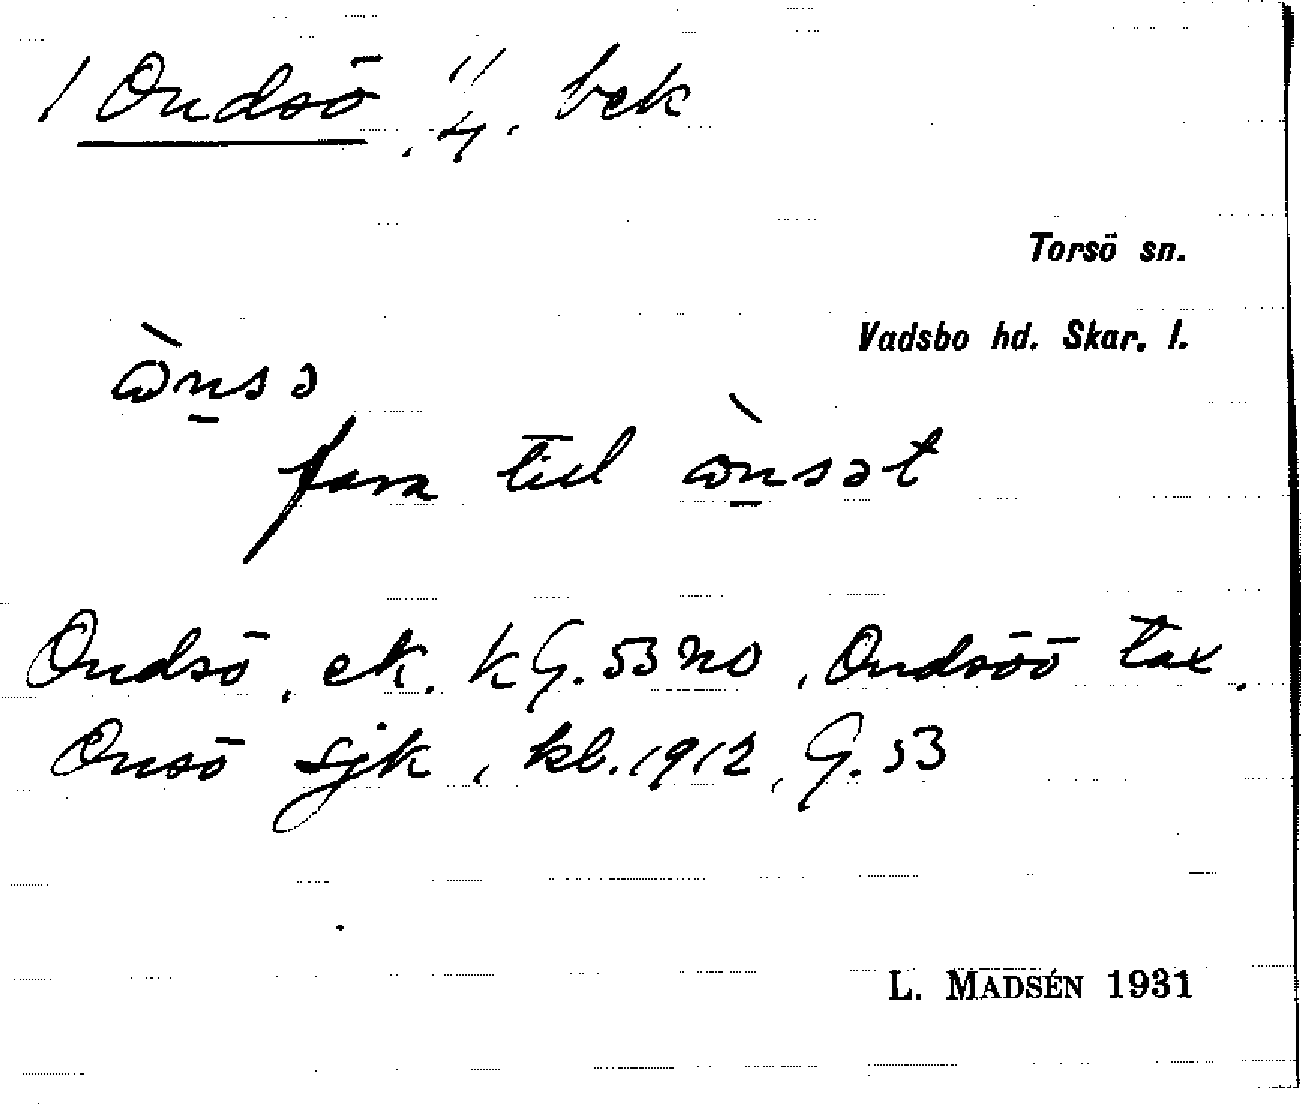 1 Ondsö, 4. bek
Torsö sn.
Vadsbo hd. Skar. l.
ònsə
fara till ònsət
Ondsö, ek. kG. 53 no, Ondsöö tax.
Onsö sjk, kb. 1912, G. 53
L. MADSÉN 1931